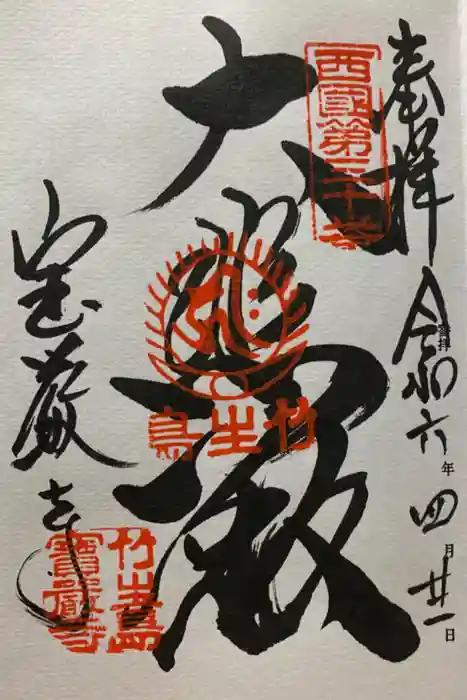 奉拝
令和六年四月廿一日
西國第三十番
大悲殿
竹生島
宝厳寺
竹生島
寶嚴寺